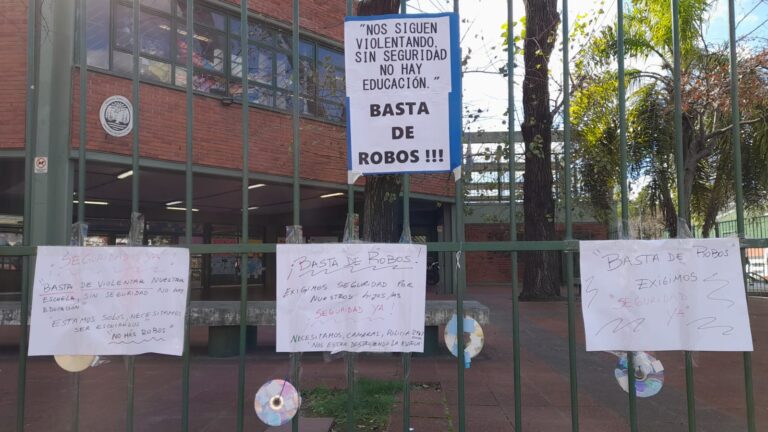 "NOS SIGUEN
VIOLENTANDO,
SIN SEGURIDAD
NO HAY
EDUCACIÓN."
BASTA
DE
ROBOS !!!
¡SEGURIDAD YA!
BASTA DE VIOLENTAR NUESTRA
ESCUELA, SIN SEGURIDAD NO HAY
EDUCACIÓN
ESTAMOS SOLOS, NECESITAMOS
SER ESCUCHADOS
NO MÁS ROBOS
¡BASTA DE ROBOS!
EXIGIMOS SEGURIDAD POR
NUESTROS HIJOS/AS
SEGURIDAD YA!
NECESITAMOS, CAMARAS, POLICIA
NOS ESTAN DESTRUYENDO LA
"BASTA DE ROBOS"
EXIGIMOS
SEGURIDAD
YA